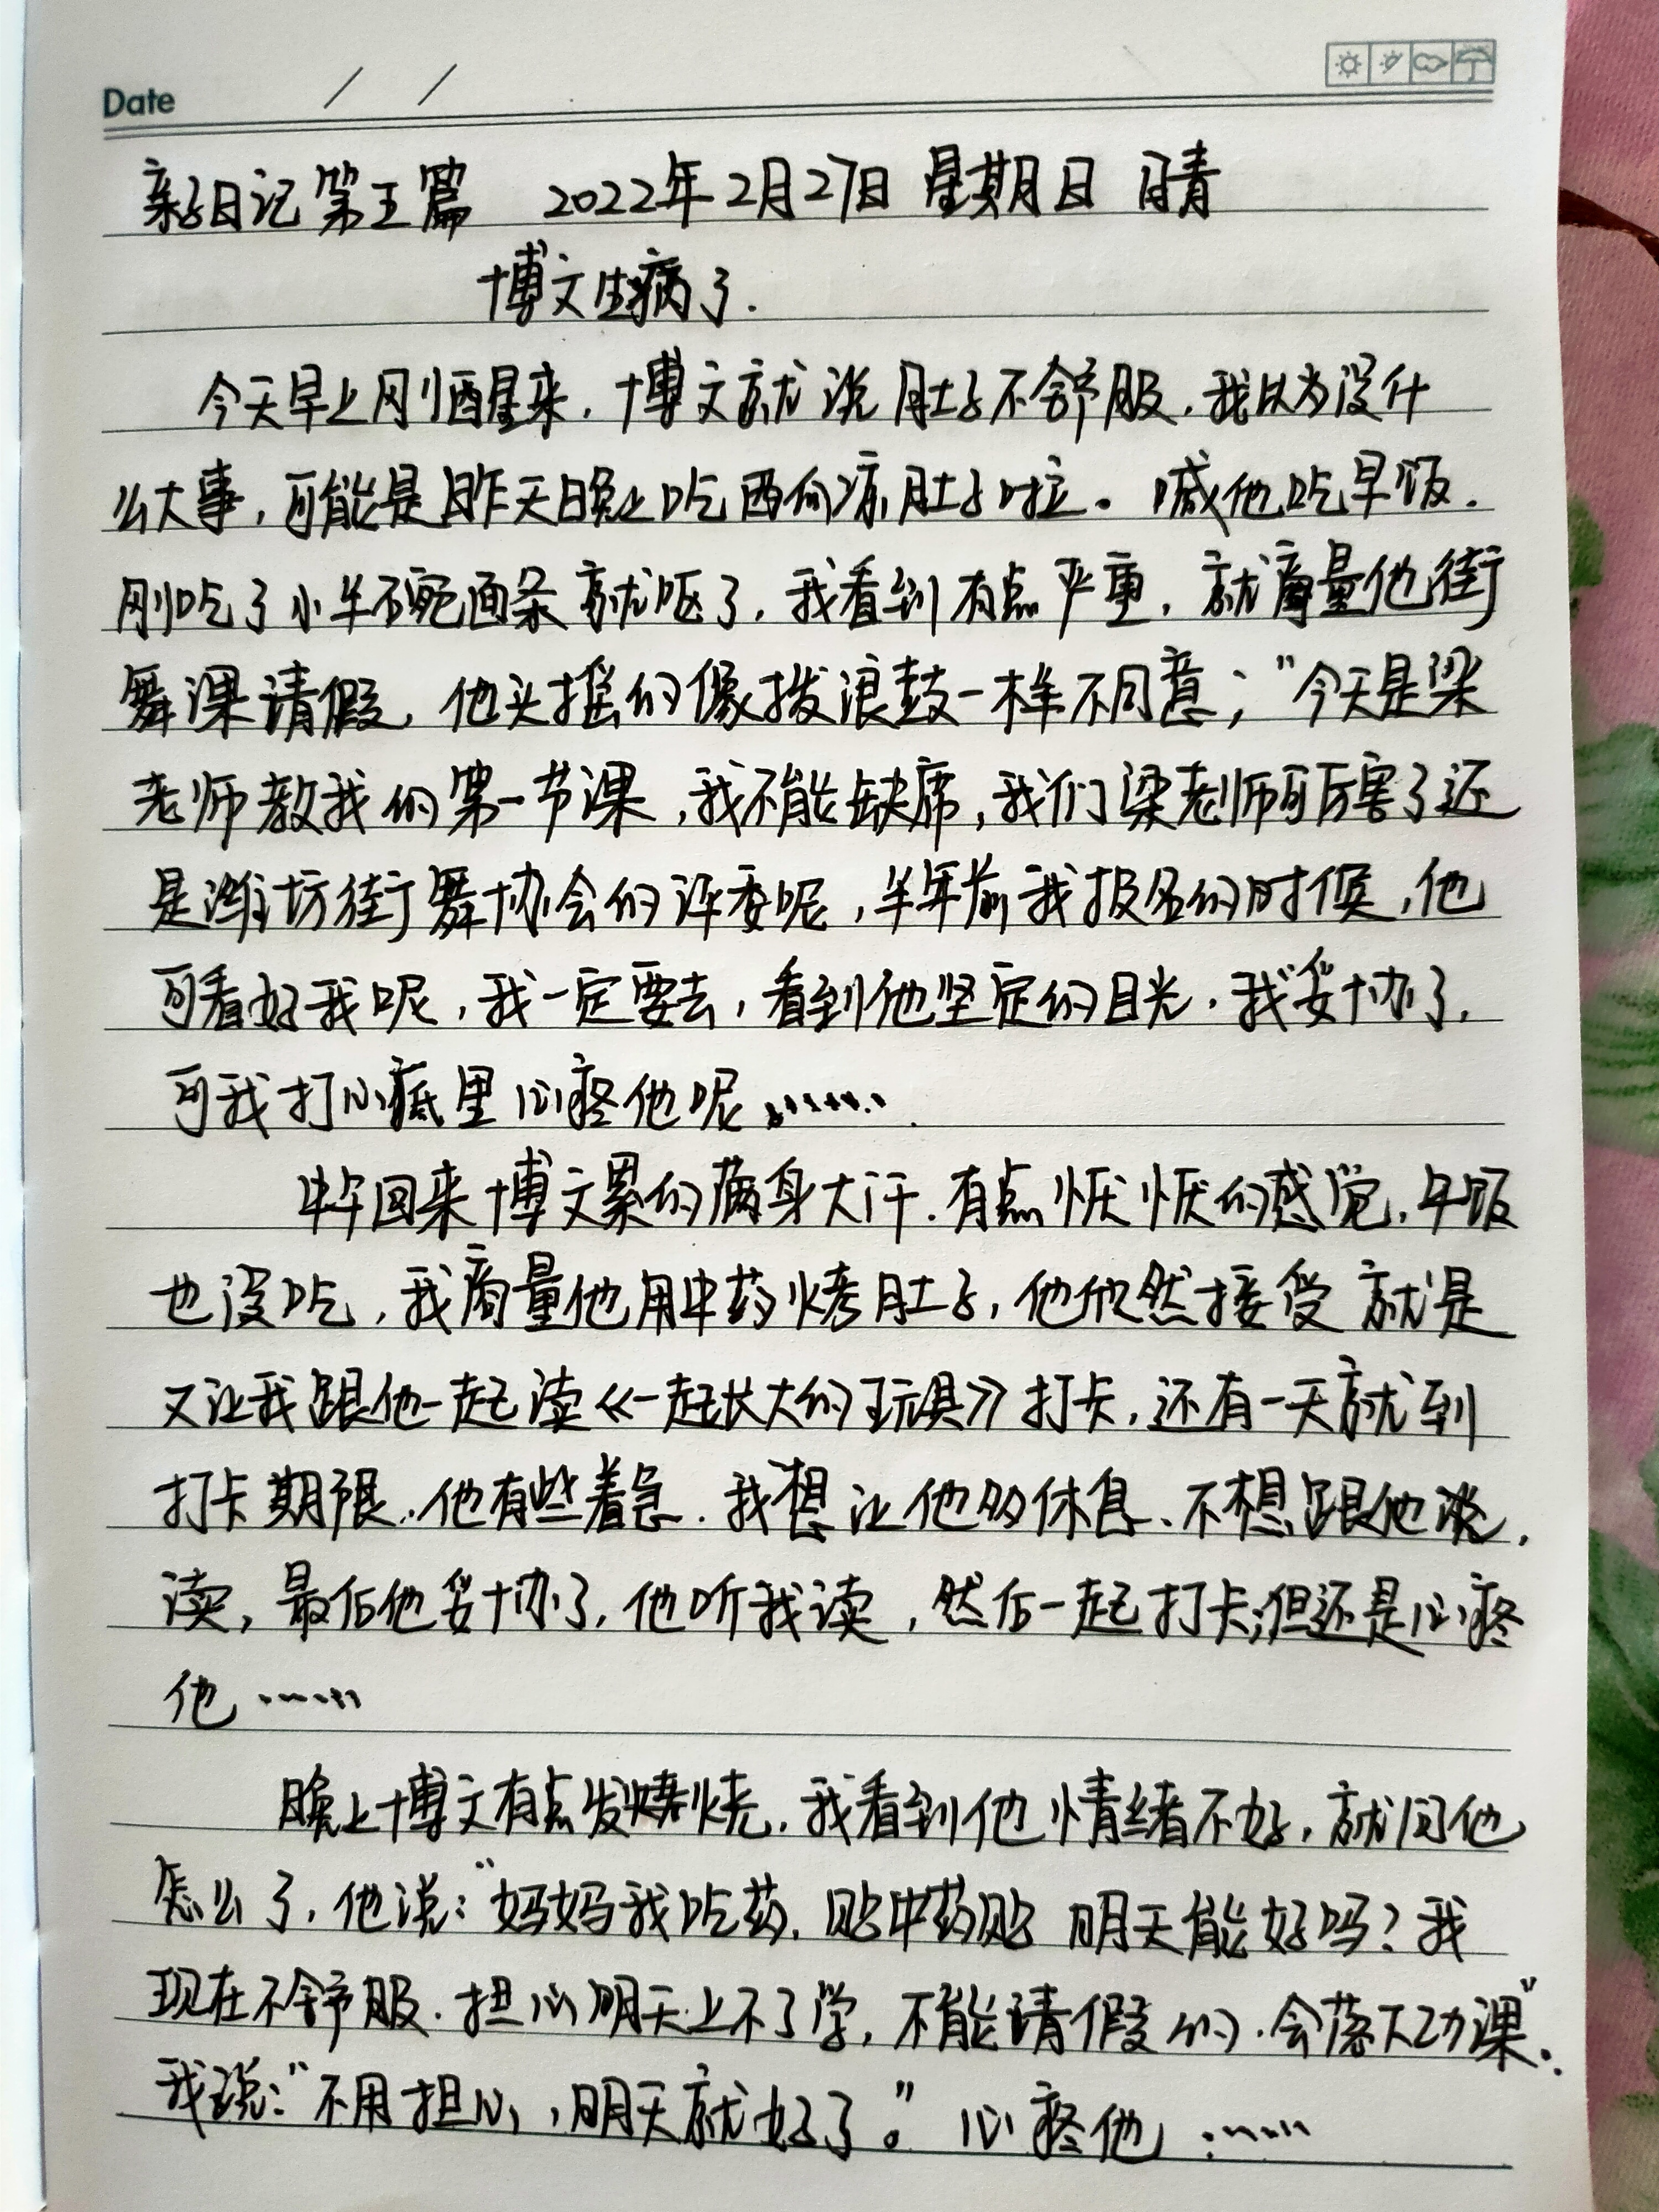 Date / /
亲子日记第五篇 2022年2月27日 星期日 晴
博文生病了.
今天早上刚醒来，博文就说肚子不舒服，我以为没什
么大事，可能是昨天晚上吃西何凉肚子啦。喊他吃早饭.
刚吃了小半碗面条就呕了，我看到有点严重，就商量他街
舞课请假，他头摇的像拨浪鼓一样不同意；“今天是梁
老师教我的第一节课，我不能缺席，我们梁老师可厉害了还
是潍坊街舞协会的评委呢，半年前我报名的时候，他
可看好我呢，我一定要去，看到他坚定的目光，我妥协了，
可我打心底里心疼他呢……
中午回来博文累的满身大汗.有点恹恹的感觉，午饭
也没吃，我商量他用中药烤肚子，他欣然接受 就是
又让我跟他一起读《一起长大的玩具》打卡，还有一天就到
打卡期限，他有些着急.我想让他多休息、不想跟他说，
读，最后他妥协了，他听我读，然后一起打卡；但还是心疼
他……
晚上博文有点发烧，我看到他情绪不好，就问他
怎么了，他说：“妈妈我吃药，贴中药贴 明天能好吗？我
现在不舒服.担心明天上不了学，不能请假的.会落下功课”.
我说：“不用担心，明天就好了。”心疼他……